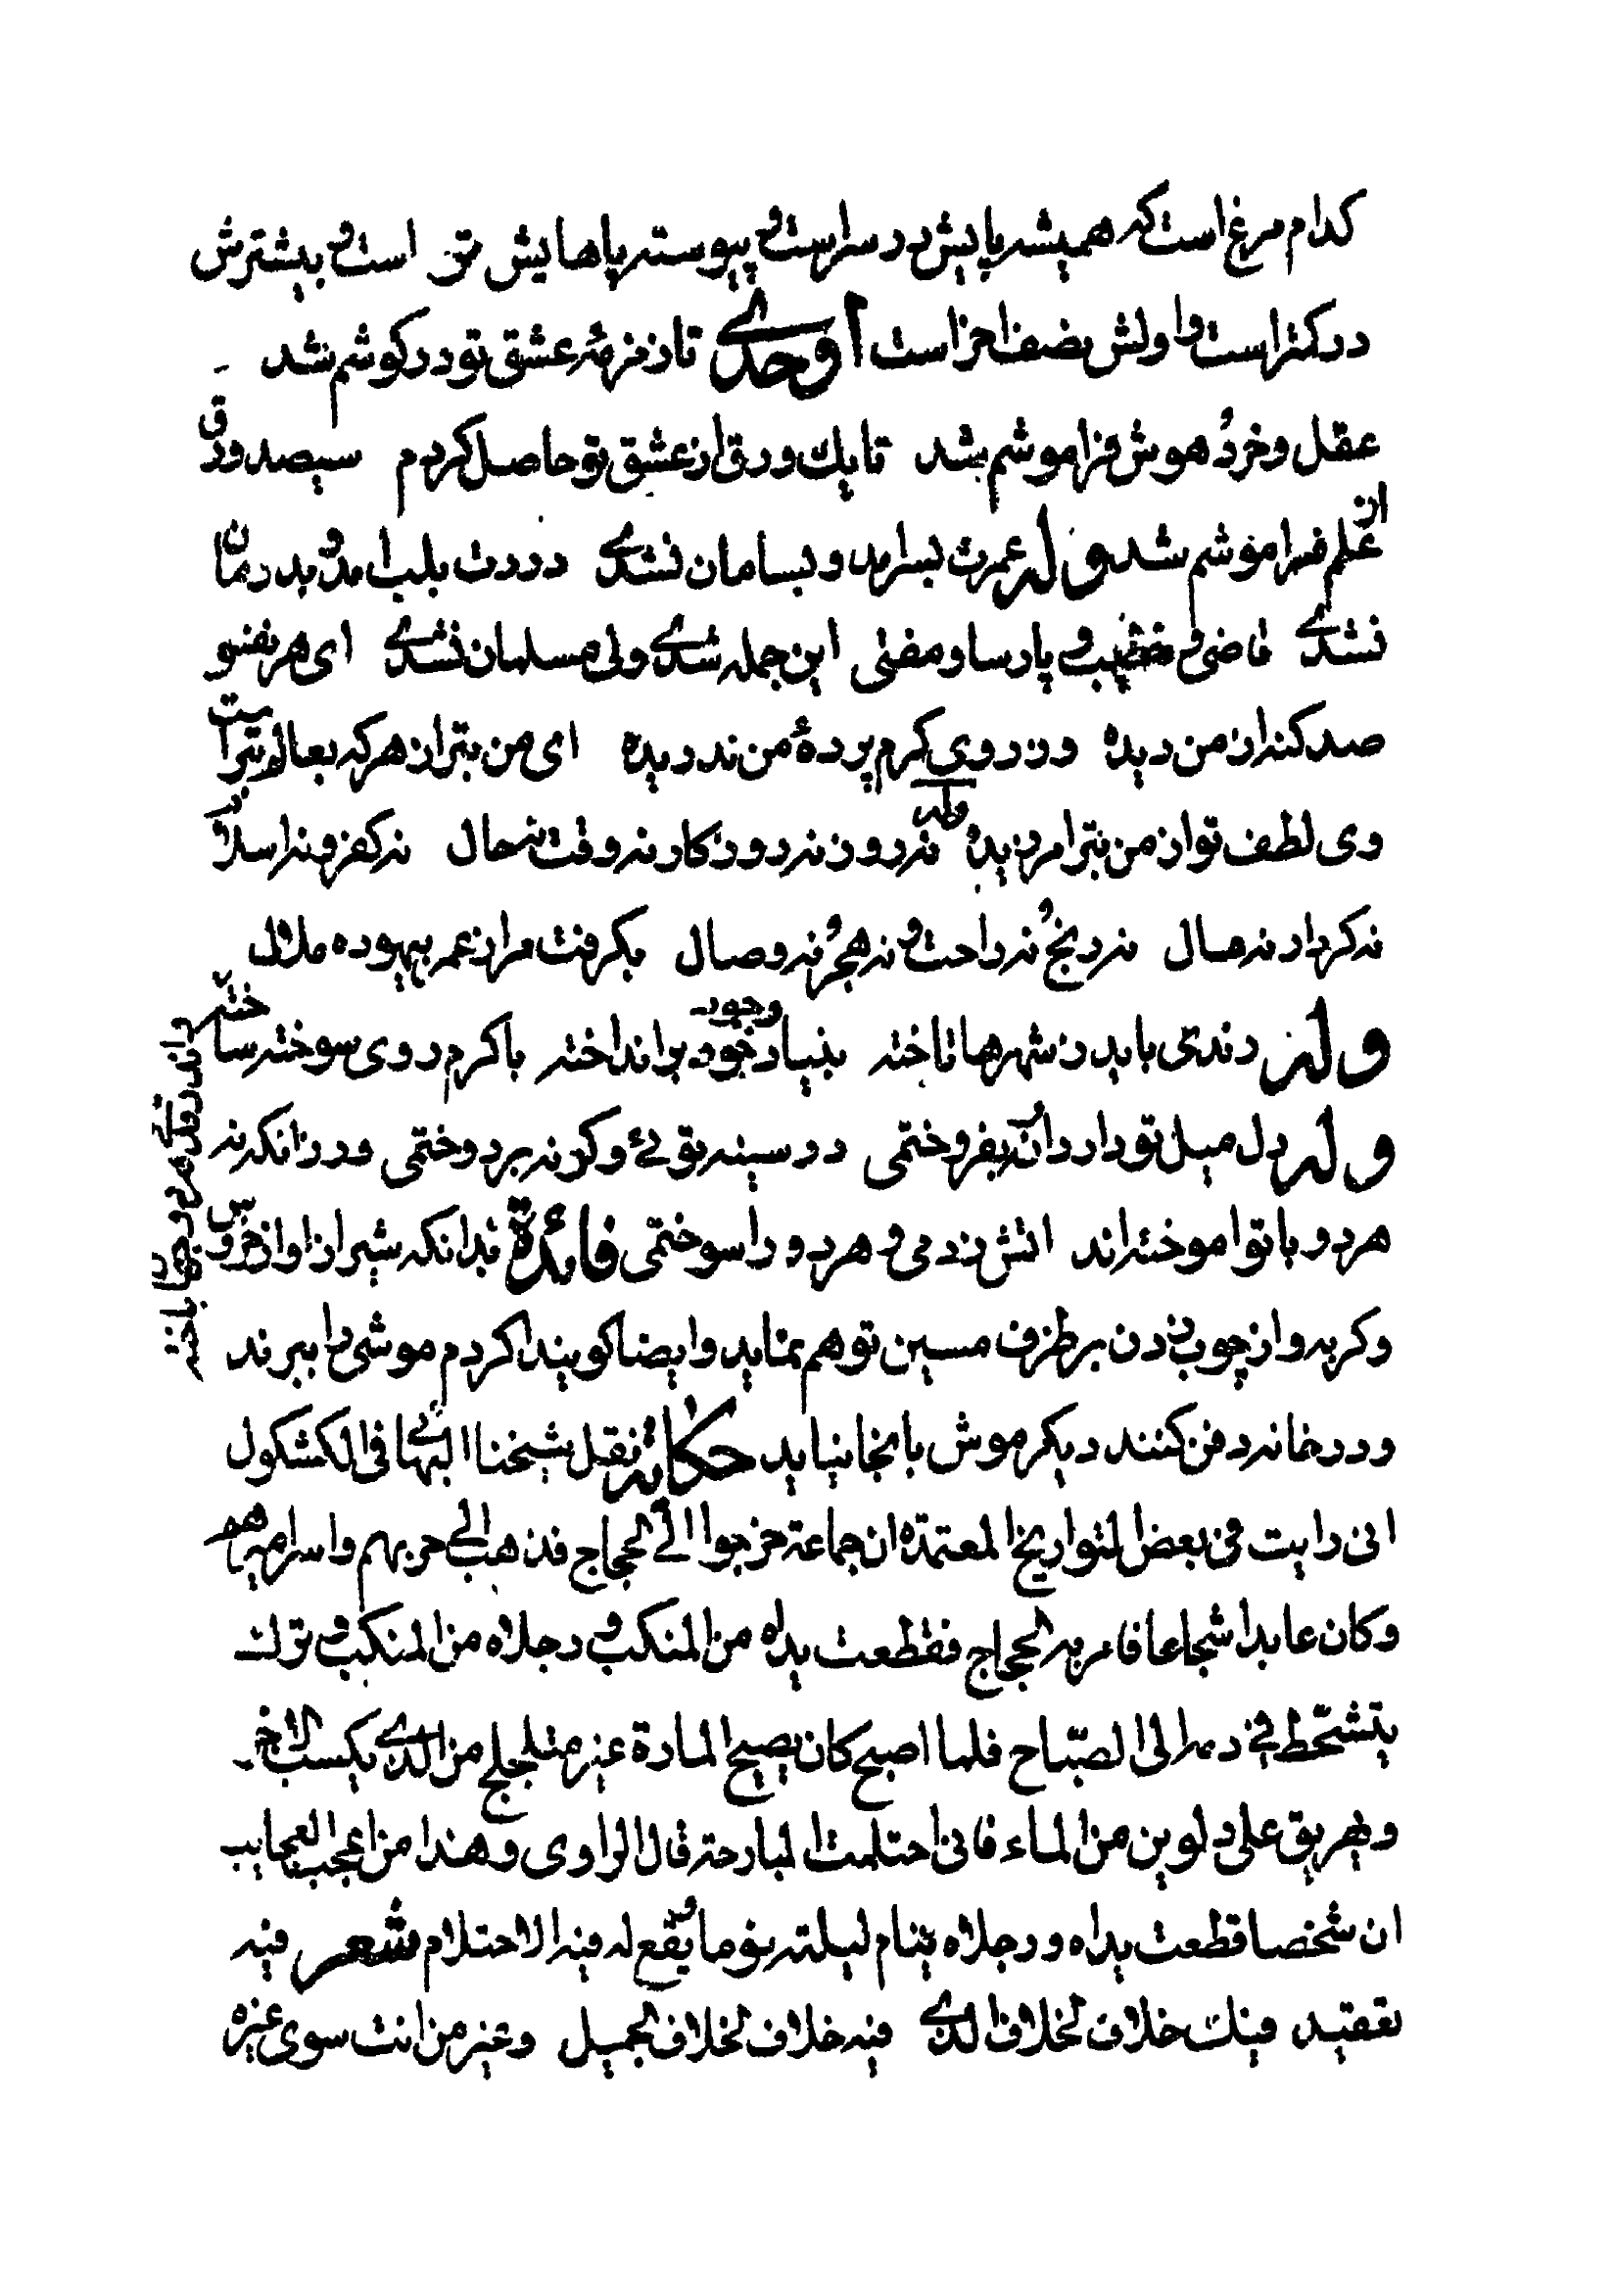 کدام مرغ است که همیشه پایش در سر است و پیوسته پاهایش تن است و بیشترش
در کنز است و اولش نصف اخر است اوحدی تا زمزمهٔ عشق تو در گوشم شد
عقل و خرد و هوش فراموشم شد تا یک ورق از عشق تو حاصل کردم سیصد ورق
از علم فراموشم شد وله عمرت بسر امد و بسامان نشدی دردت بلب امد و بدرمان
نشدی قاضی و خطیب و پارسا و مفتی این جمله شدی ولی مسلمان نشدی ای هر نفسی
صد کنه از من دیده وز روی کرم پردهٔ من ندریده ای من بتر از هر که بعالم بتر است
وی لطف تو از من بتر امرزیده وله نه روز نه روزکار نه وقت نه حال نه کفر و نه اسلام
نه کردار نه مال نه رنج و نه راحت و نه هجر و نه وصال بکرفت مرا زعمر بیهوده ملال
وله رندی باید ز شهرها تاخته بنیاد وجود خود برانداخته با کرم روی سوخته ساخته
وله دل میل تو دارد ار نه بفروختمی در سینه توئی وکر نه بر دوختمی ور زانکه نه
هر دو با تو اموخته اند اتش زدمی و هر دو را سوختمی فائدة بدانکه شیر از اواز خروس
و کربه و از چوب زدن بر طرف مسین توهم نماید و ایضا کویند اکر دم موشی را ببرند
و در خانه دفن کنند دیکر موش بانجا نیاید حکایة نقل شیخنا البهائی فی الکشکول
انی رایت فی بعض التواریخ المعتمدة ان جماعة خرجوا الی الحجاج فذهب الی حربهم و اسر امیرهم
و کان عابدا شجاعا فامر به الحجاج فقطعت یداه من المنکب و رجلاه من المنکب و ترک
یتشحّط فی دمه الی الصّباح فلما اصبح کان یصیح المارة غیر متلجلج من الذی یکسب الاجر
و یهریق علی دلوین من الماء فانی احتلمت البارحة قال الراوی و هذا من اعجب العجایب
ان شخصا قطعت یداه و رجلاه ینام لیلته نوما یقع له فیه الاحتلام شعر فیه
تعقید فیک خلاف لخلاف الذی فیه خلاف لخلاف الجمیل و غیر من انت سوی غیره